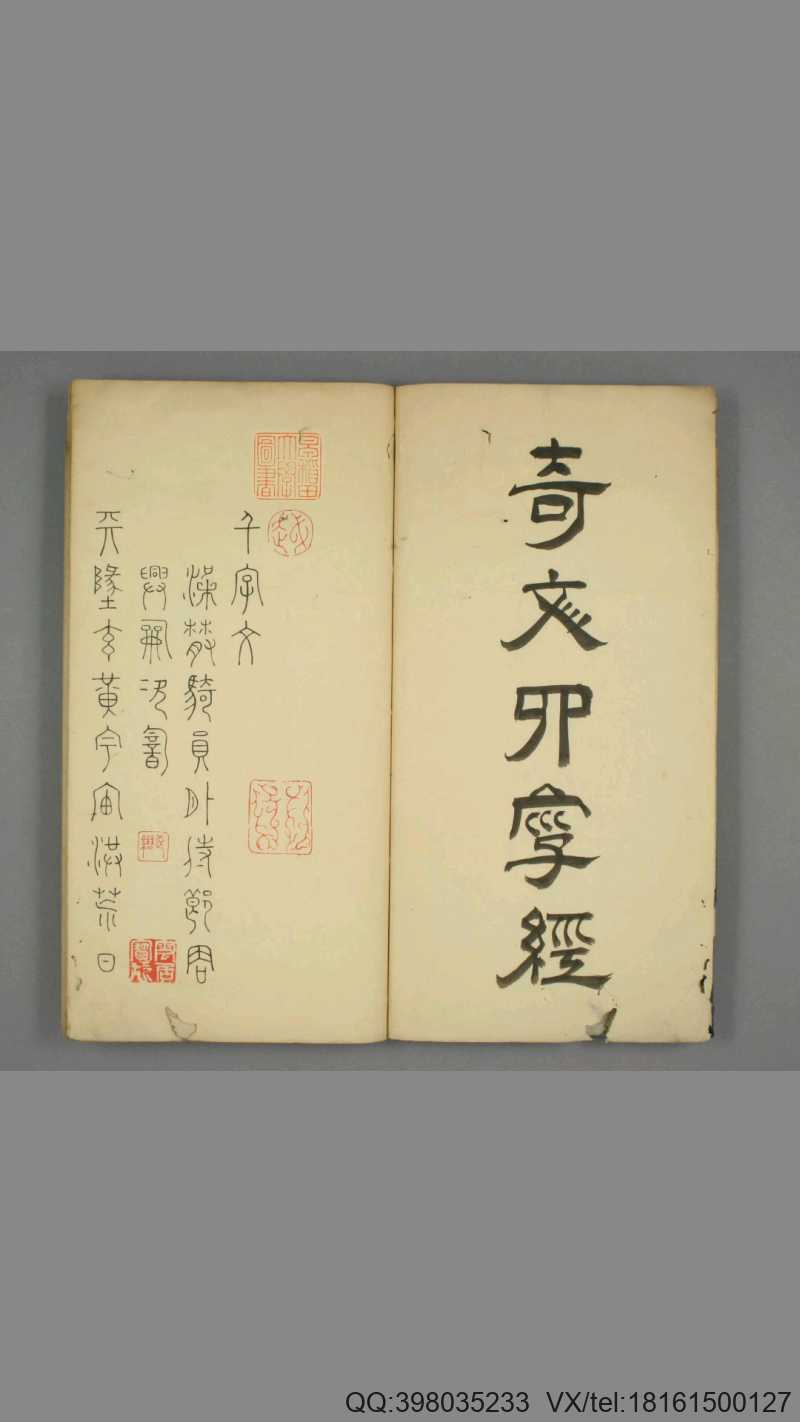 奇文卯經
早稻田大學圖書
千字文
梁散騎員外侍郎周
興嗣次韻
天墬玄黃宇宙洪荒日
QQ:398035233 VX/tel:18161500127